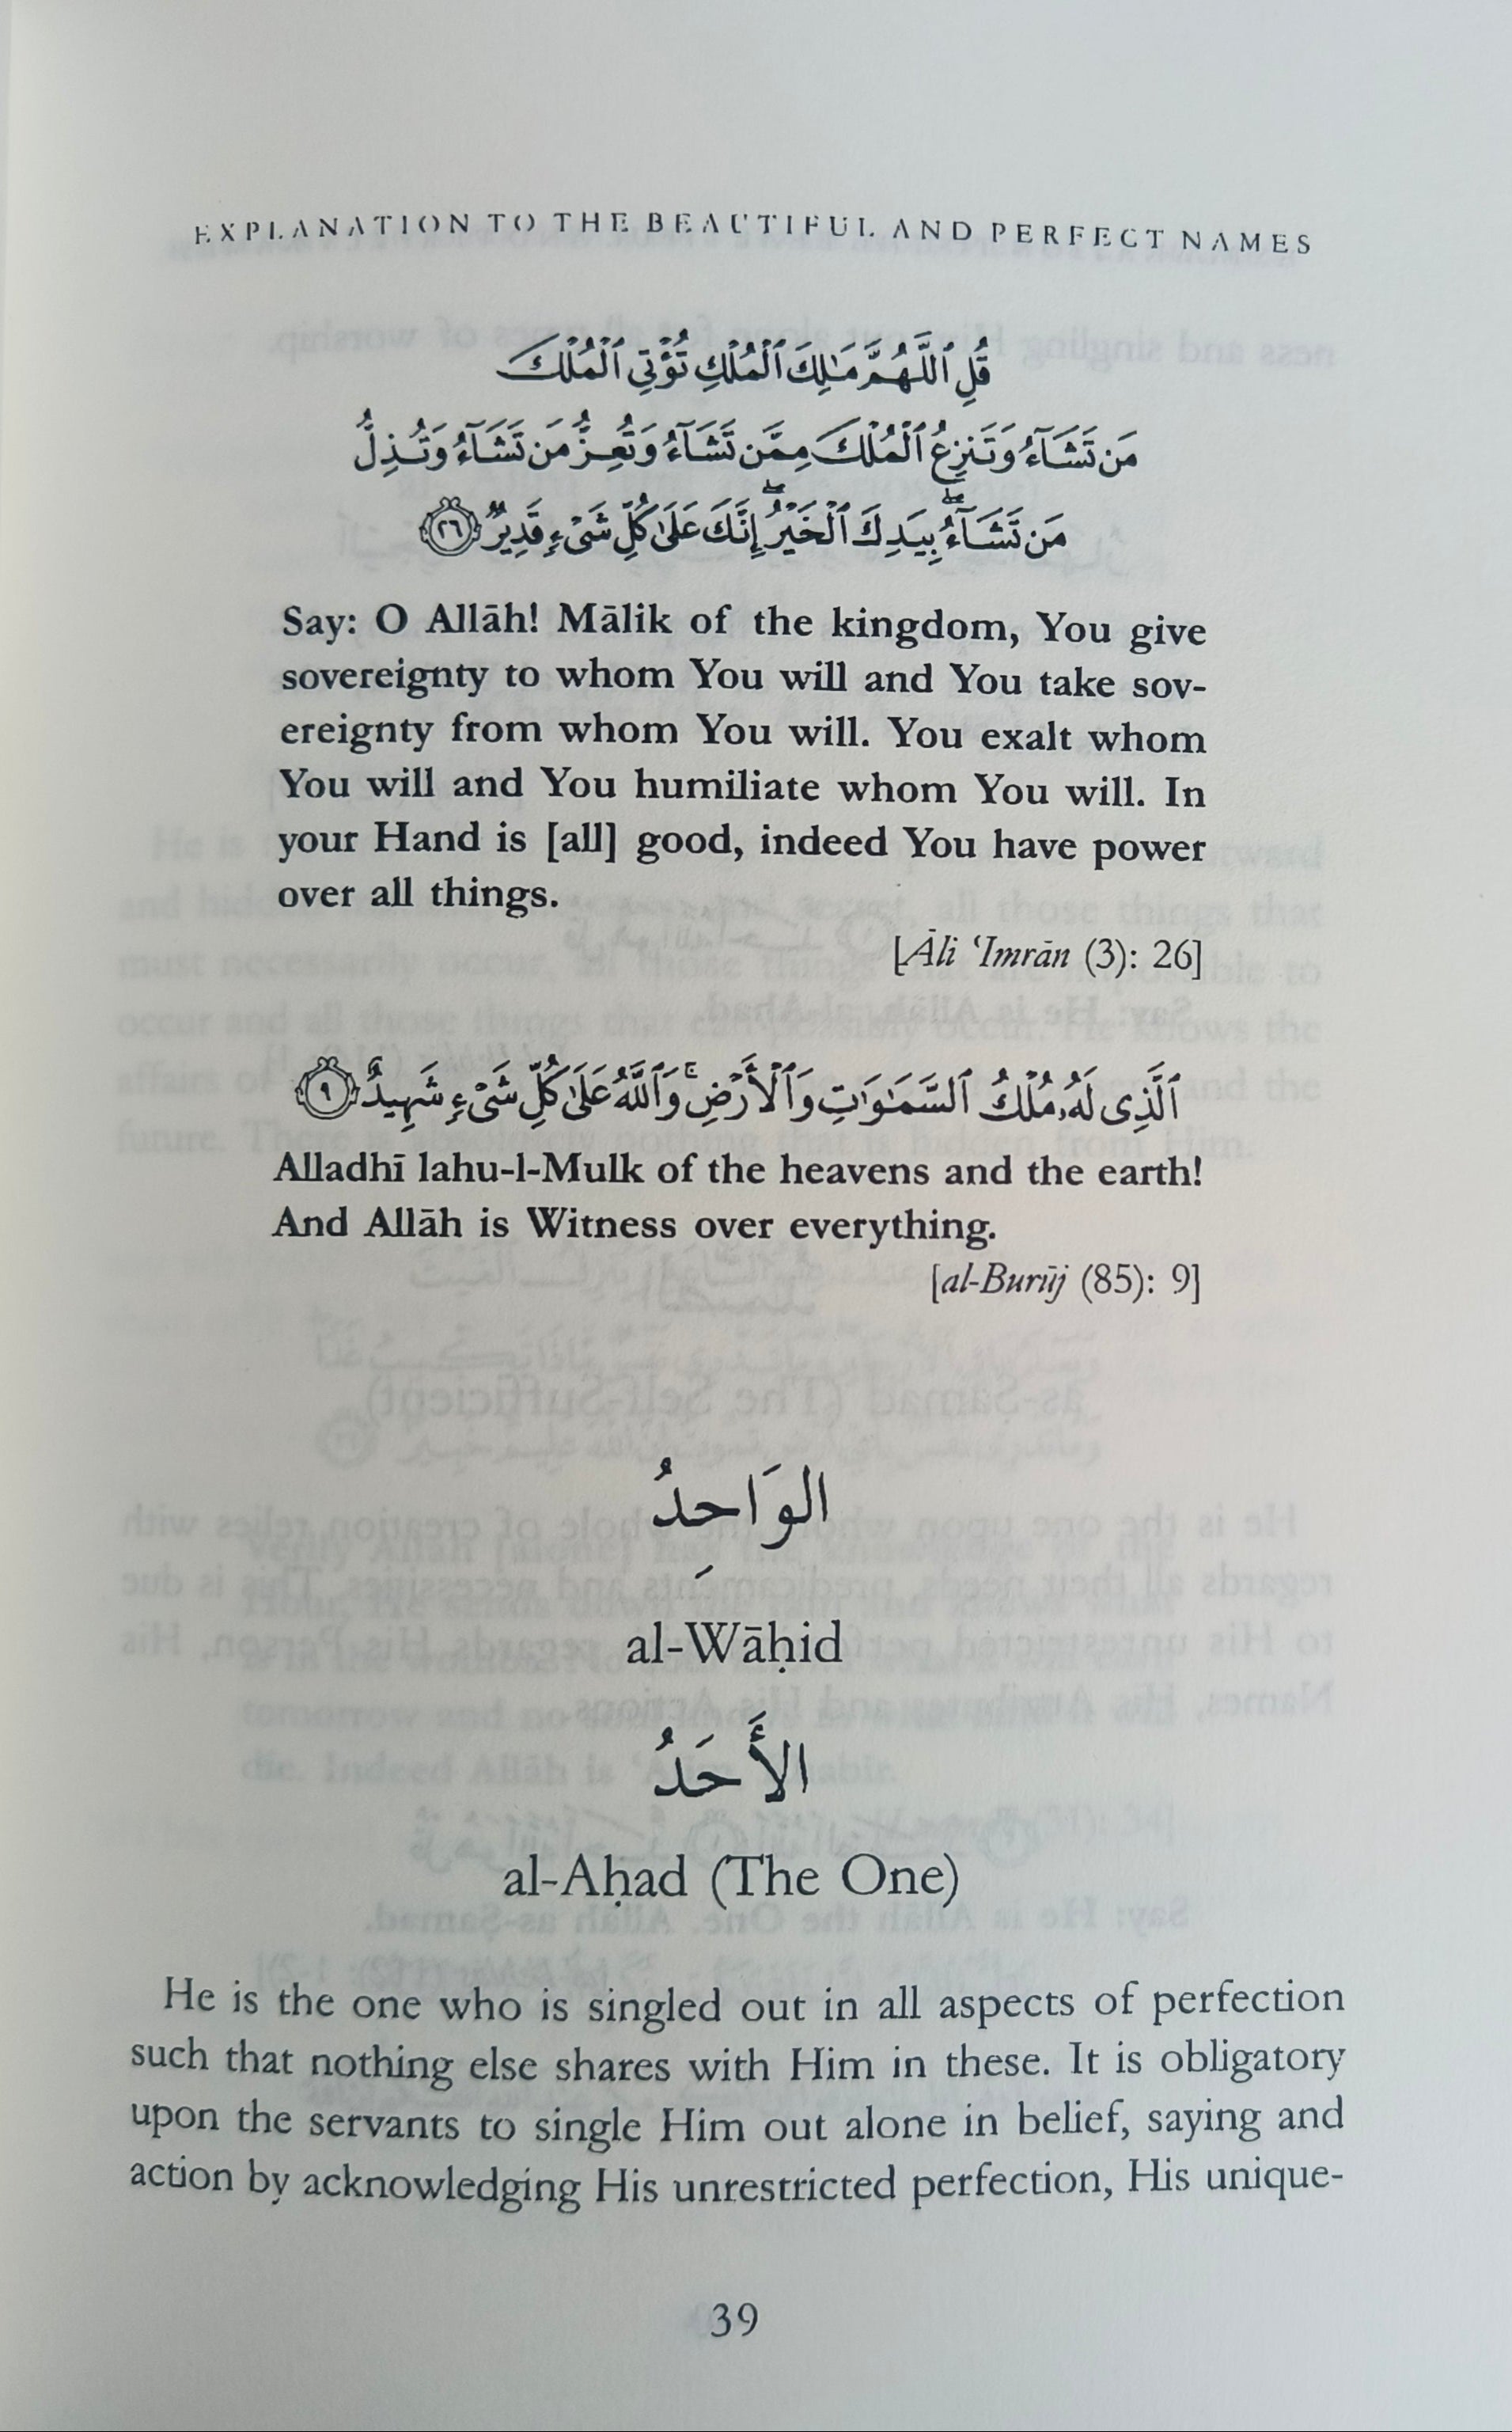 EXPLANATION TO THE BEAUTIFUL AND PERFECT NAMES
قُلِ ٱللَّهُمَّ مَـٰلِكَ ٱلْمُلْكِ تُؤْتِى ٱلْمُلْكَ
مَن تَشَآءُ وَتَنزِعُ ٱلْمُلْكَ مِمَّن تَشَآءُ وَتُعِزُّ مَن تَشَآءُ وَتُذِلُّ
مَن تَشَآءُ ۖ بِيَدِكَ ٱلْخَيْرُ ۖ إِنَّكَ عَلَىٰ كُلِّ شَىْءٍ قَدِيرٌ ٢٦
Say: O Allāh! Mālik of the kingdom, You give
sovereignty to whom You will and You take sov-
ereignty from whom You will. You exalt whom
You will and You humiliate whom You will. In
your Hand is [all] good, indeed You have power
over all things.
[Āli ‘Imrān (3): 26]
ٱلَّذِى لَهُۥ مُلْكُ ٱلسَّمَـٰوَٰتِ وَٱلْأَرْضِ ۚ وَٱللَّهُ عَلَىٰ كُلِّ شَىْءٍ شَهِيدٌ ٩
Alladhī lahu-l-Mulk of the heavens and the earth!
And Allāh is Witness over everything.
[al-Burūj (85): 9]
الوَاحِدُ
al-Wāḥid
الأَحَدُ
al-Aḥad (The One)
He is the one who is singled out in all aspects of perfection
such that nothing else shares with Him in these. It is obligatory
upon the servants to single Him out alone in belief, saying and
action by acknowledging His unrestricted perfection, His unique-
39